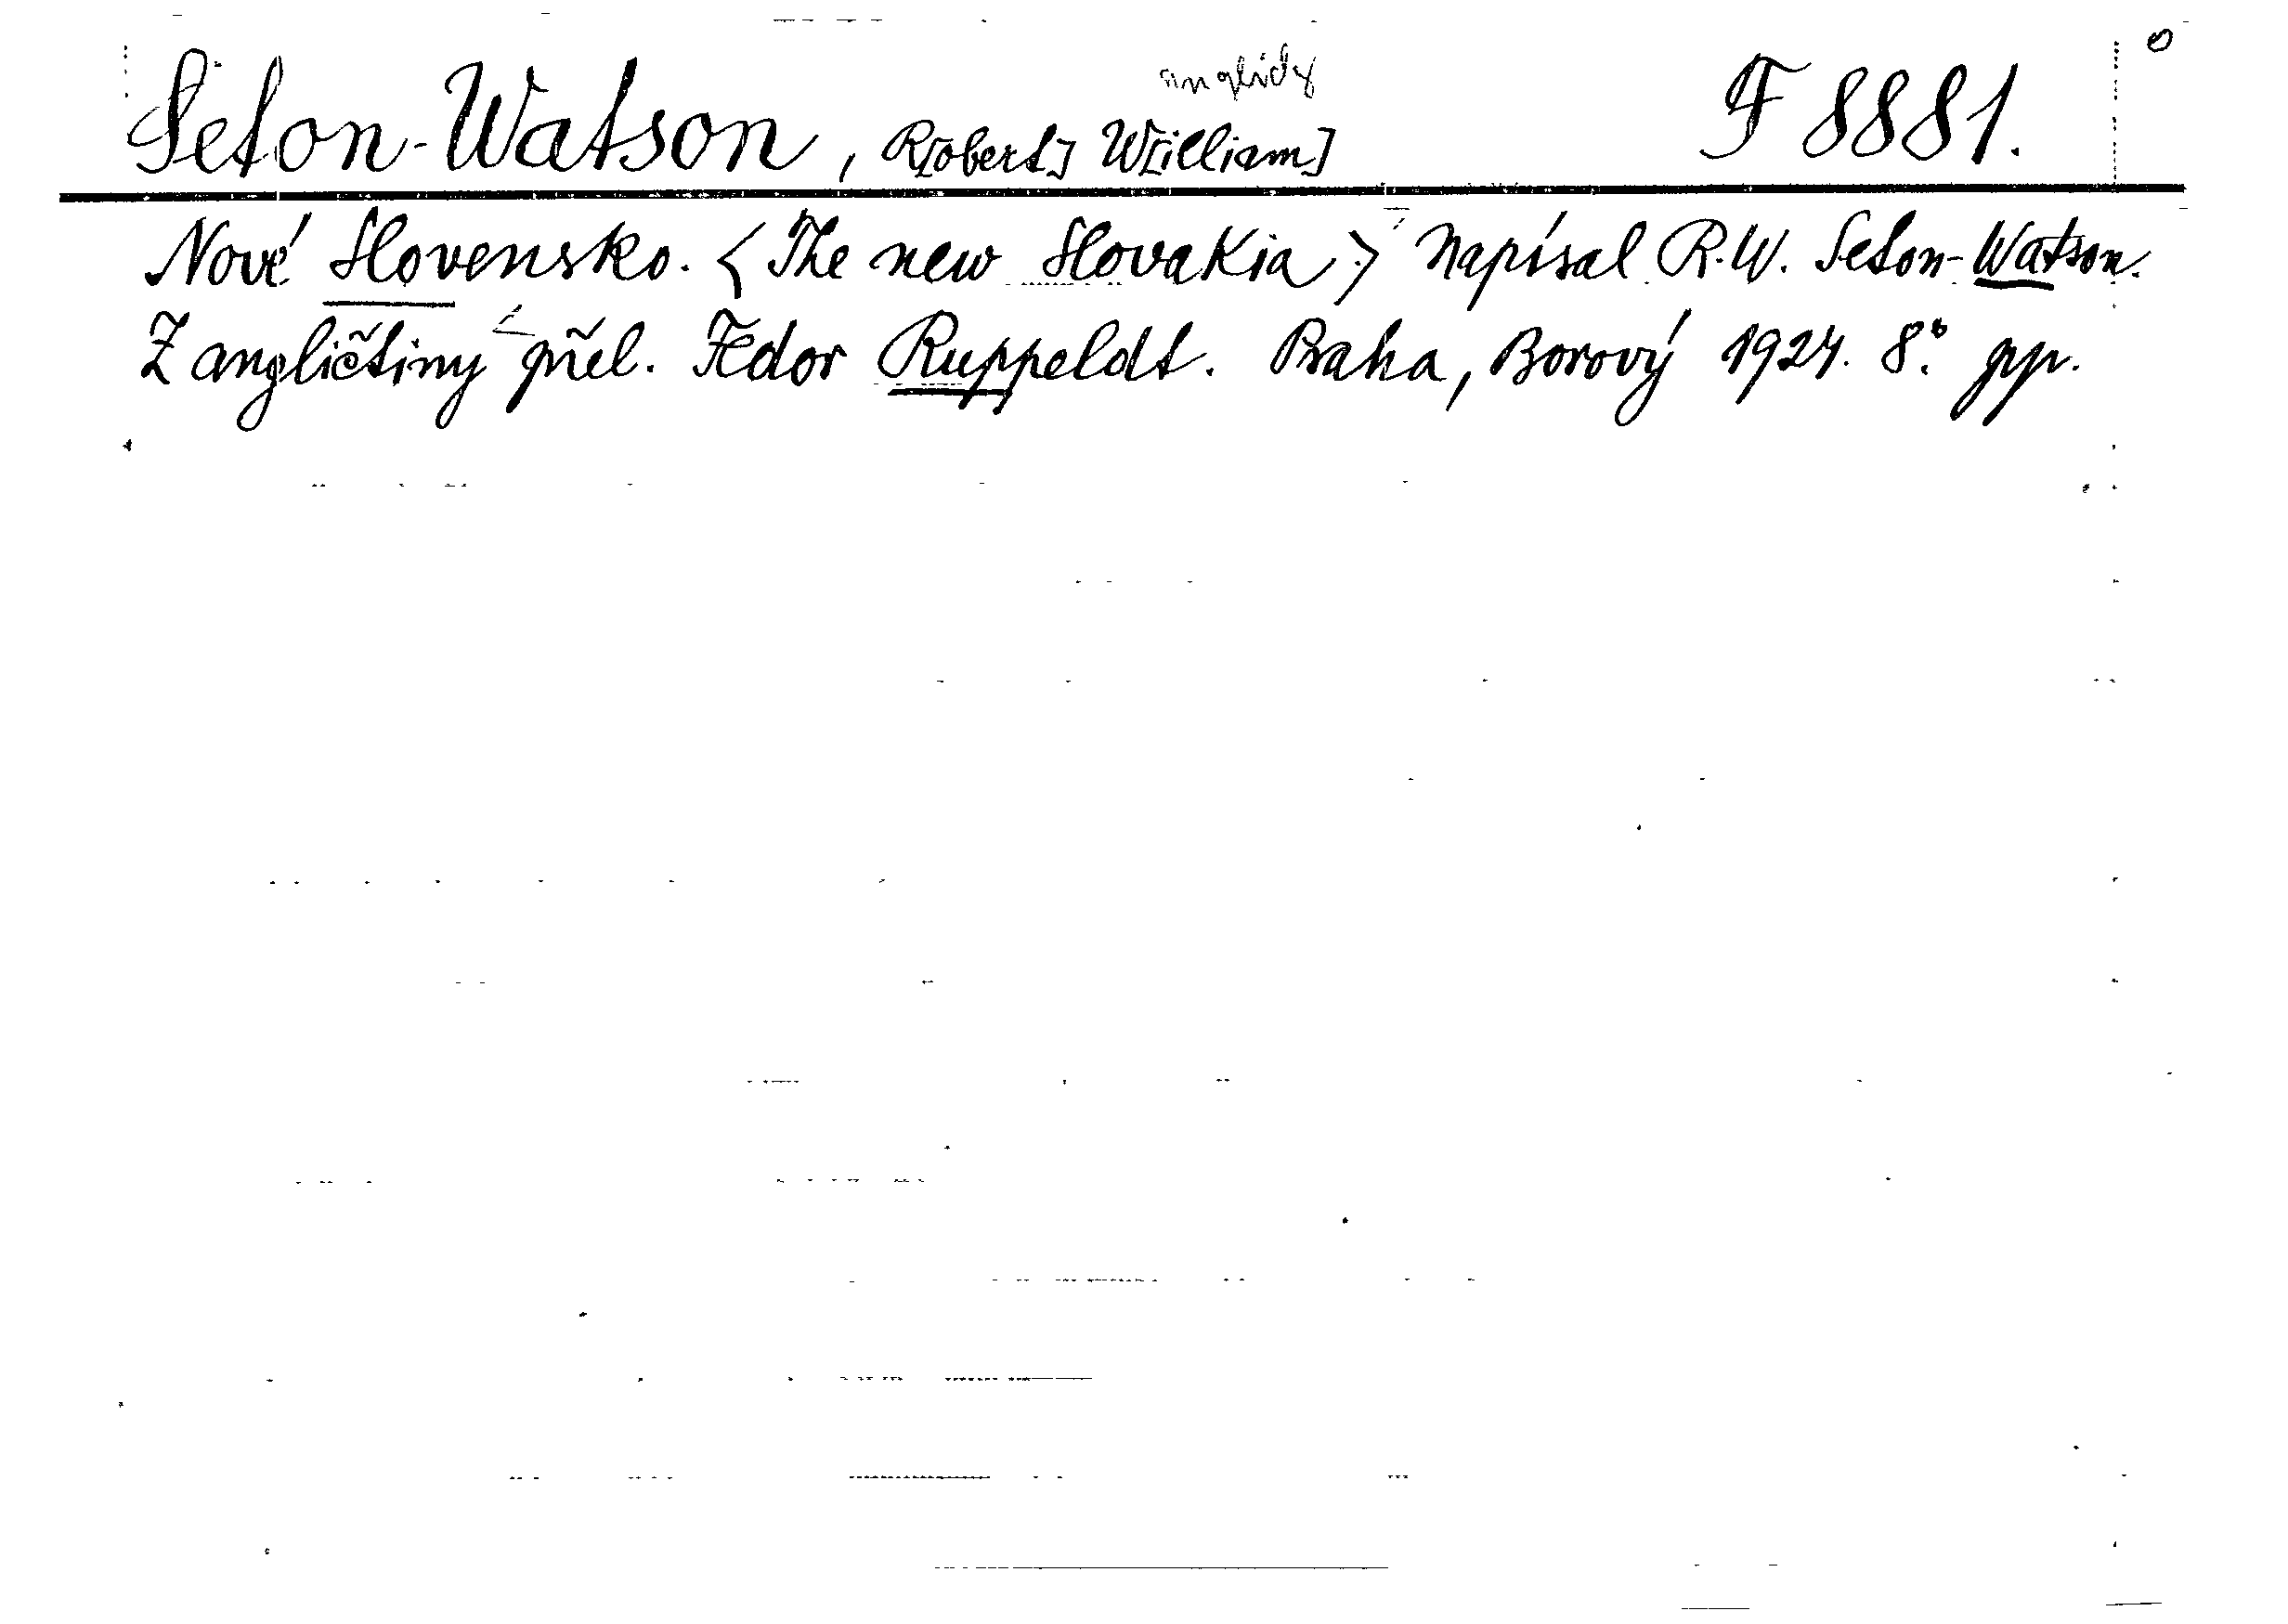 Seton-Watson, R[obert] W[illiam] F 8881.
Nové Slovensko. <The new Slovakia.> Napísal R. W. Seton-Watson.
Z angličtiny přel. Fedor Ruppeldt. Praha, Borový 1924. 8.° pp.